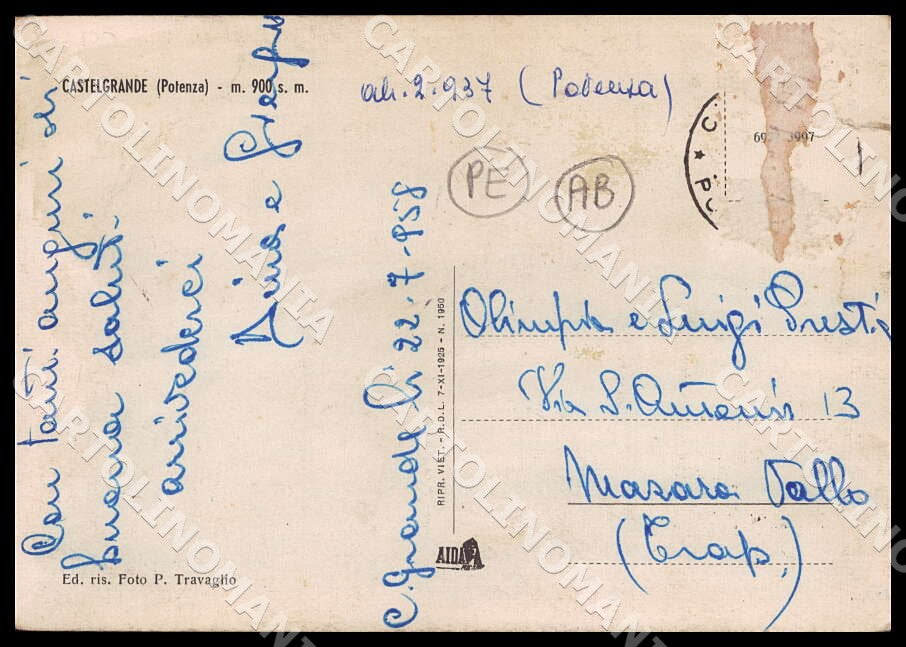 CASTELGRANDE (Potenza) - m. 900 s. m.
ab. 2.937 (Potenza)
PE
AB
Con tanti auguri di
buona salute.
arrivederci
C. Grande li 22-7-958
RIPR. VIET. - R.D.L. 7-XI-1925 - N. 1950
Olimpia e Luigi Presti
Via S. Antonio 13
Mazara Vallo
(Trap.)
AIDA
Ed. ris. Foto P. Travaglio
CARTOLINOMANIA